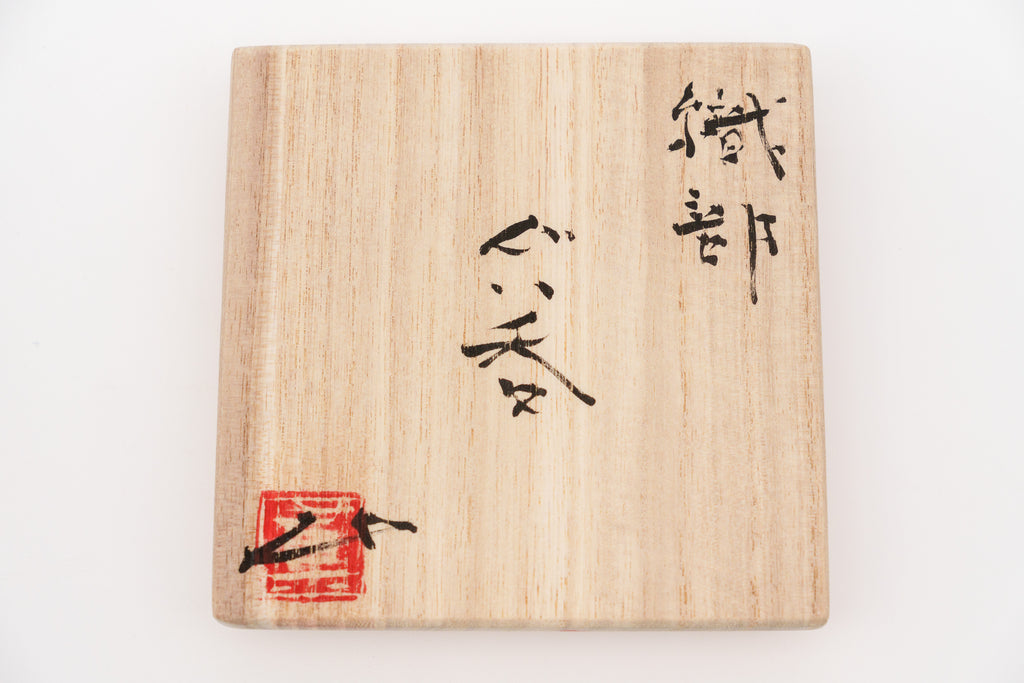 織部
ぐい呑